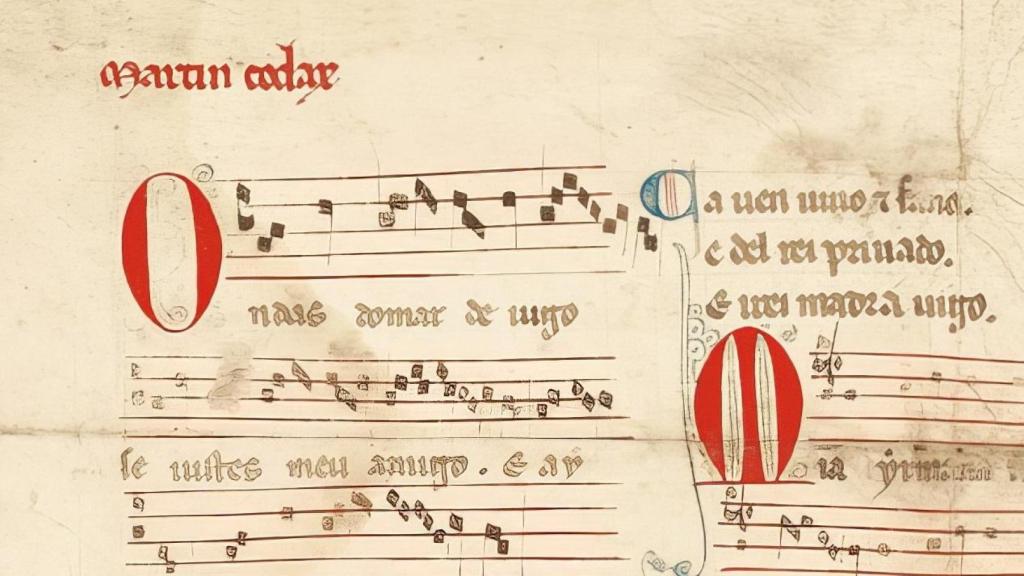 Martin codax
Ondas domar de uigo
se uistes meu amigo. E ay
Ca uen uiuo ⁊ sano.
e del rei priuado.
E irei madr a uigo.
Mia